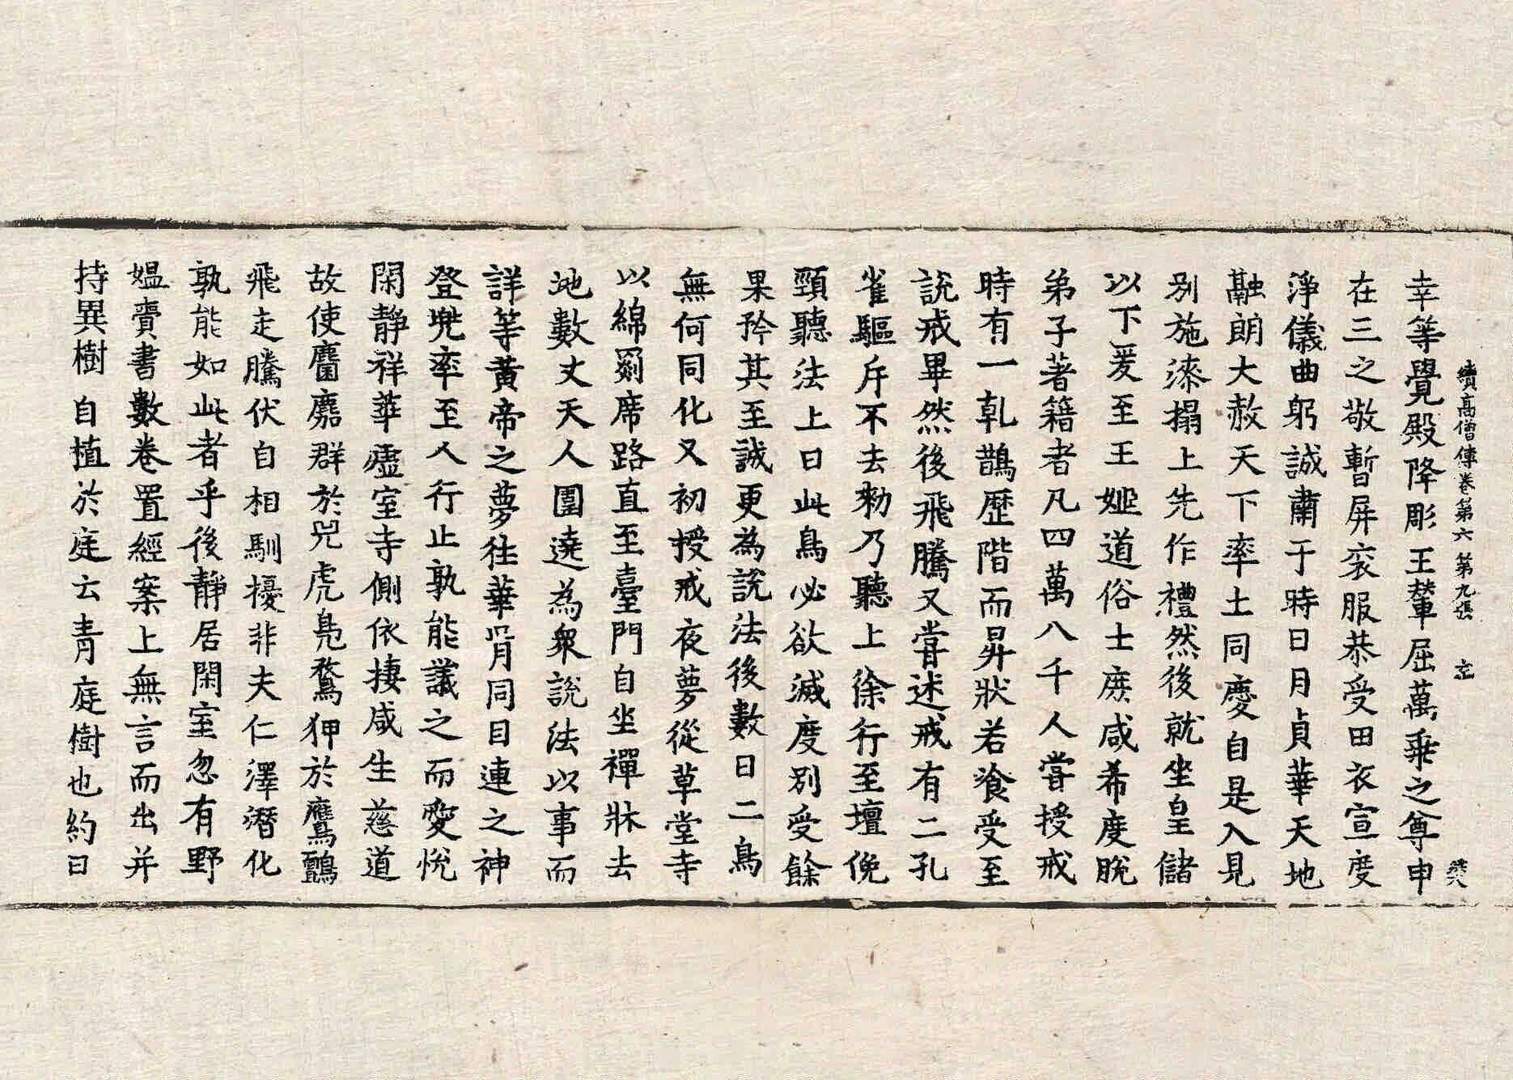 續高僧傳卷第六 第九張 㐬
幸等覺殿降彫玉輦屈萬乘之尊申
在三之敬暫屏衮服恭受田衣宣度
淨儀曲躬誠肅于時日月貞華天地
融朗大赦天下率土同慶自是入見
別施漆搨上先作禮然後就坐皇儲
以下爰至王姬道俗士庶咸希度脫
弟子著籍者凡四萬八千人嘗授戒
時有一乹鵲歷階而昇狀若飡受至
說戒畢然後飛騰又嘗述戒有二孔
雀驅斥不去勑乃聽上徐行至壇俛
頸聽法上曰此鳥必欲滅度別受餘
果矜其至誠更為說法後數日二鳥
無何同化又初授戒夜夢從草堂寺
以綿罽席路直至臺門自坐禪牀去
地數丈天人圍遶為衆說法以事而
詳等黃帝之夢往華胥同目連之神
登兠率至人行止孰能議之而變恱
閑靜祥華虛室寺側依捿咸生慈道
故使麕麚群於兕虎鳧鶩狎於鷹鸇
飛走騰伏自相馴擾非夫仁澤潛化
孰能如此者乎後靜居閑室忽有野
媪賷書數卷置經案上無言而出并
持異樹自植於庭云青庭樹也約曰